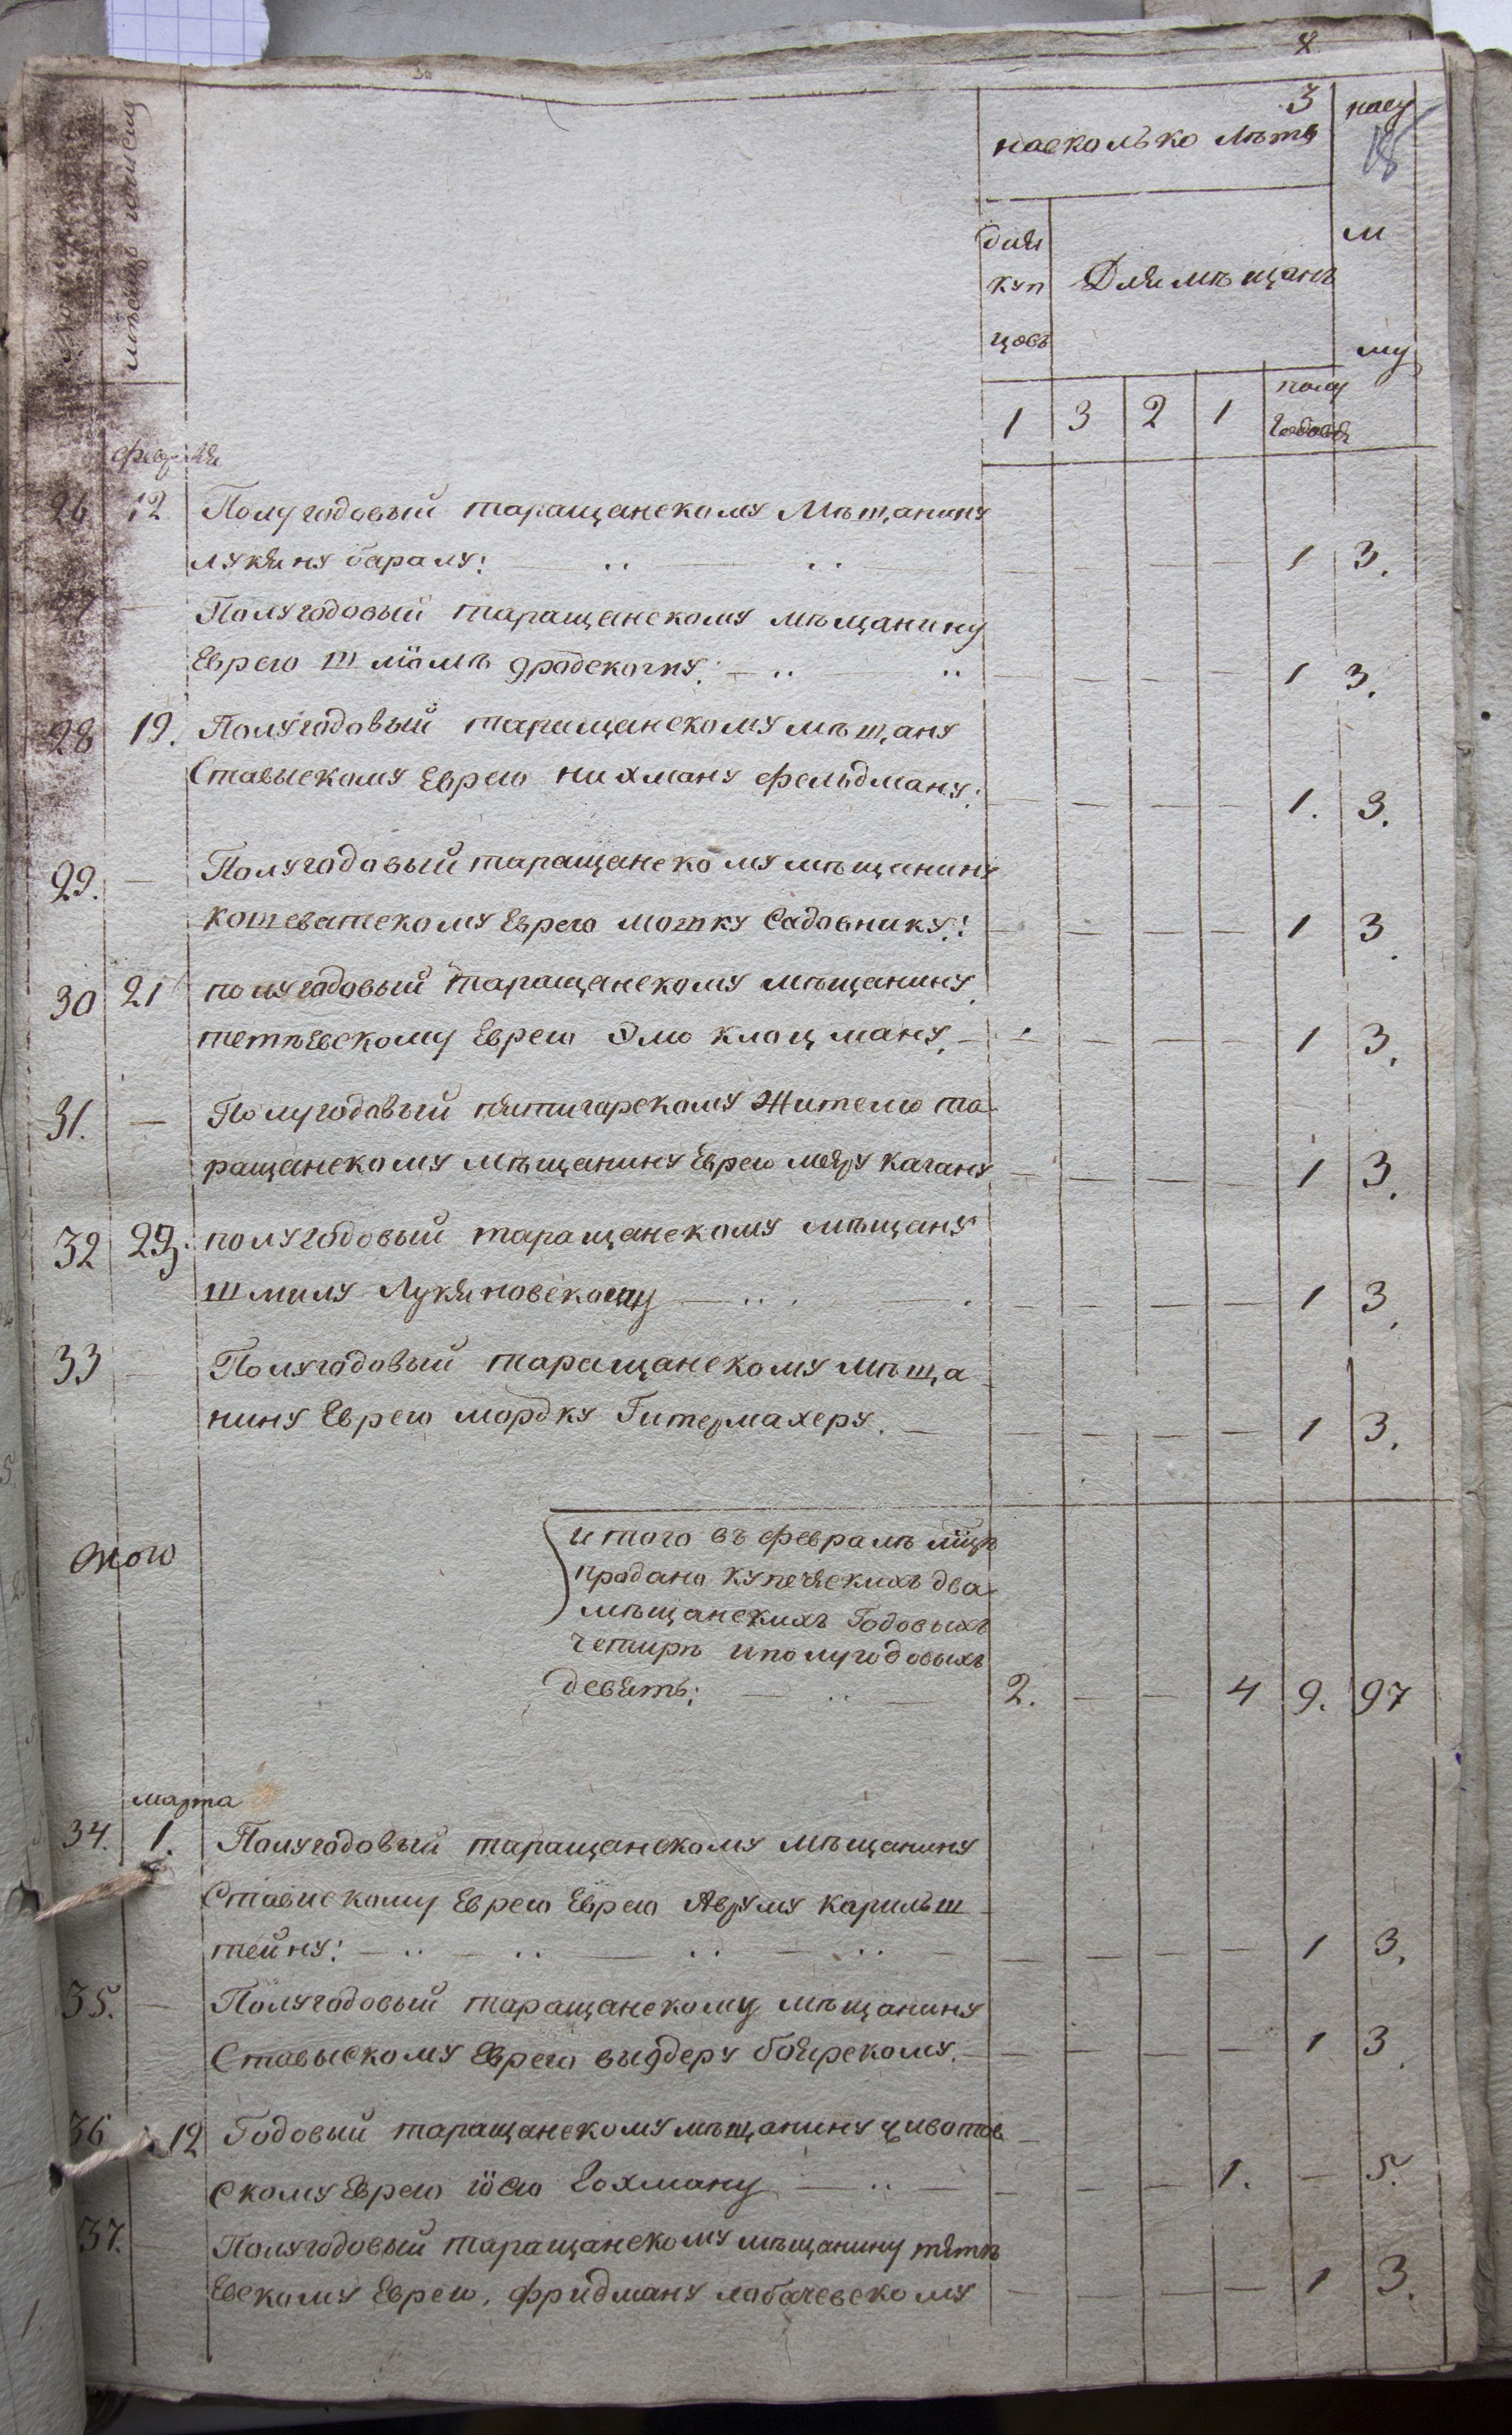 3
насколько лѣтъ
насу
18
мѣсяцъ
для
куп
цовъ
Для мѣщанъ
м
му
1 3 2 1 полу
годовой
февраля
26 12 Полугодовый таращанскому Мѣщанину
лукяну баралу: — — — — 1 3.
27 — Полугодовый таращанскому мѣщанину
Еврею шлiомѣ — — — — 1 3.
28 19. Полугодовый таращанскому мѣщану
Ставыскому Еврею нихману фельдману: — — — — 1. 3.
29. — Полугодовый таращанскому мѣщанину
котеватскому Еврею мошку Садовнику: — — — — 1 3.
30 21 полугодовый таращанскому мѣщанину
тетѣевскому Еврею Элю клоцману. — — — — 1 3.
31. — Полугодовый пятигорскому Жителю та
ращанскому мѣщанину Еврею меяру кагану — — — — 1 3.
32 23. полугодовый таращанскому мѣщану
шмилу Лукяновскому — — — — 1 3.
33 — Полугодовый таращанскому мѣща
нину Еврею мордку Гитермахеру. — — — — 1 3.
итого въ февралѣ мцѣ
продано купеческихъ два
мѣщанскихъ Годовыхъ
четирѣ и полугодовыхъ
девять: 2. — — 4 9. 97
марта
34. 1. Полугодовый таращанскому мѣщанину
Ставискому Еврею Еврею Авруму карильш
тейну: — — — — 1 3.
35. — Полугодовый таращанскому мѣщанину
Ставыскому Еврею выдеру боярскому. — — — — 1 3.
36 12 Годовый таращанскому мѣщанину животов
скому Еврею iосю Гохману — — — 1. — 5.
37. — Полугодовый таращанскому мѣщанину тятѣ
евскому Еврею, фридману лобачевскому — — — — 1 3.